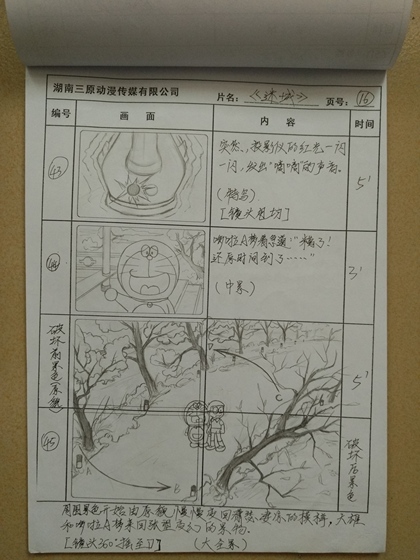 湖南三原动漫传媒有限公司 片名:《迷城》 页号: 16
编号 画面 内容 时间
43
突然,投影仪的红光一闪
一闪,发出"嘀嘀"的声音。
(特写)
[镜头急切]
5'
44
哆啦A梦着急道:"糟了!
还原时间到了……"
(中景)
3'
破坏后景色原貌
45
5'
破坏后景色
A
B
C
D
周围景色开始由原貌慢慢变回
的模样,大雄
和哆啦A梦来回张望
的景物。
[镜头360°摇至D] (大全景)